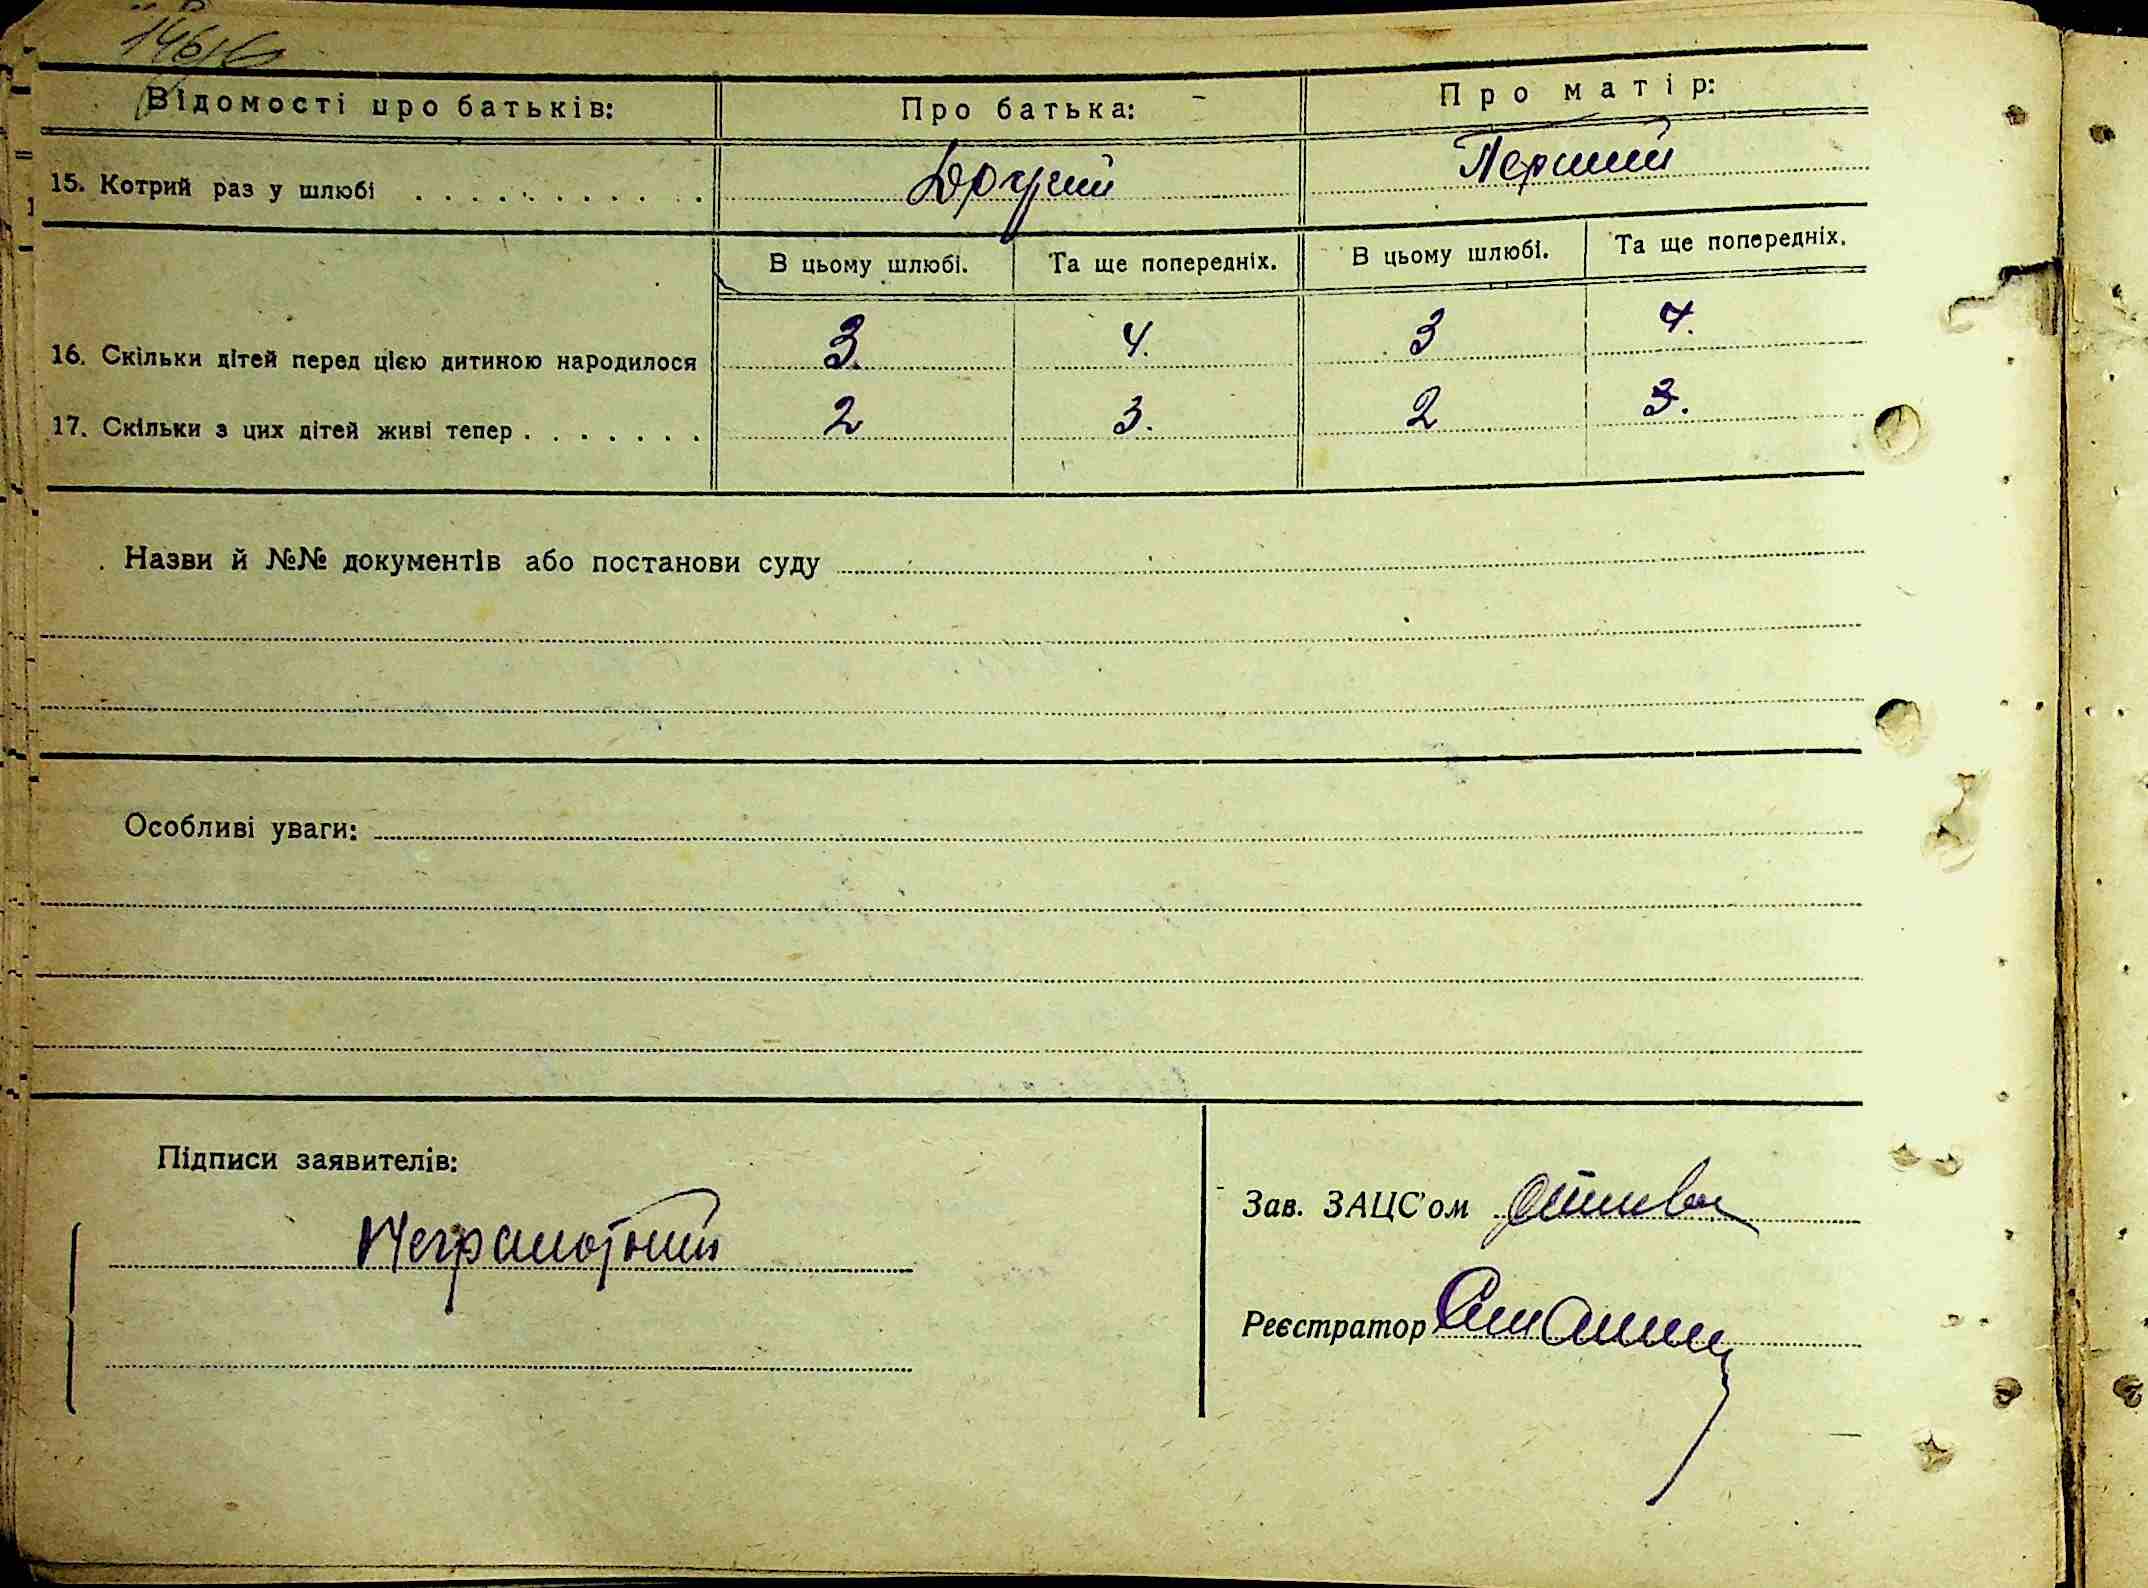 Відомості про батьків: Про батька: Про матір:
15. Котрий раз у шлюбі . . . . . . . . . . . Другий Перший
В цьому шлюбі. Та ще попередніх. В цьому шлюбі. Та ще попередніх.
16. Скільки дітей перед цією дитиною народилося 3. 4. 3 4.
17. Скільки з цих дітей живі тепер . . . . . . . 2 3. 2 3.
Назви й №№ документів або постанови суду
Особливі уваги:
Підписи заявителів:
Неграмотний
Зав. ЗАЦС'ом
Реєстратор